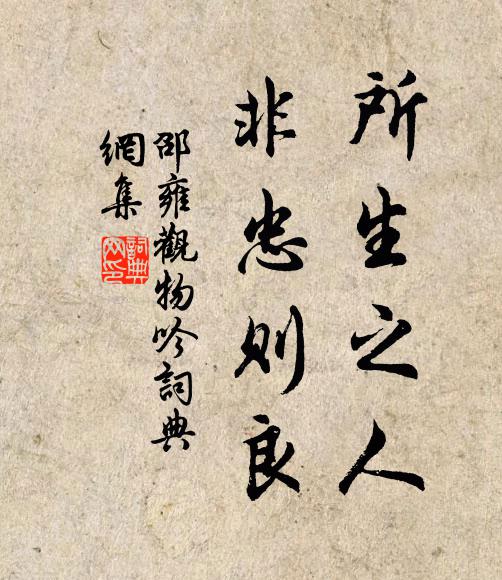 所生之人
非忠则良
邵雍觀物吟詞典
網集
詞典
网印